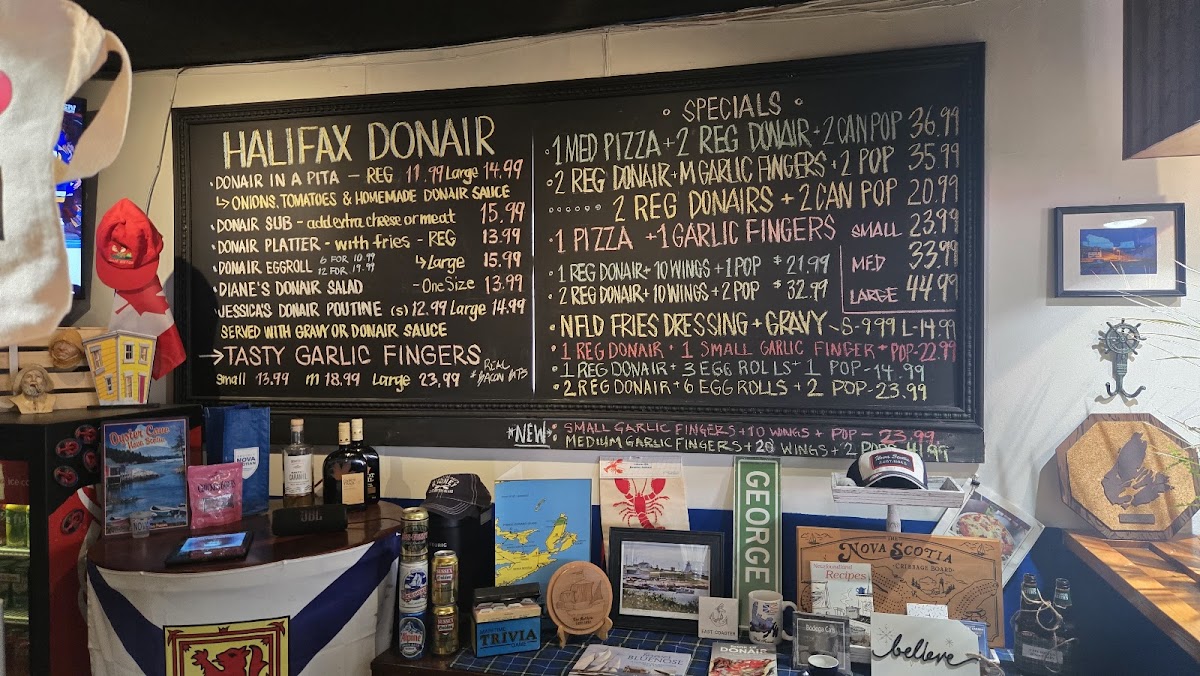 HALIFAX DONAIR
• DONAIR IN A PITA – REG 11.99 Large 14.99
↳ ONIONS, TOMATOES & HOMEMADE DONAIR SAUCE
• DONAIR SUB - add extra cheese or meat 15.99
• DONAIR PLATTER - with fries - REG 13.99
↳ Large 15.99
• DONAIR EGGROLL 6 FOR 10.99
12 FOR 19.99
• DIANE'S DONAIR SALAD - One Size 13.99
• JESSICA'S DONAIR POUTINE (s) 12.99 Large 14.99
SERVED WITH GRAVY OR DONAIR SAUCE
→ TASTY GARLIC FINGERS
small 13.99 m 18.99 Large 23,99 * REAL BACON BITS
◦ SPECIALS ◦
• 1 MED PIZZA + 2 REG DONAIR + 2 CAN POP 36.99
• 2 REG DONAIR + M GARLIC FINGERS + 2 POP 35.99
2 REG DONAIRS + 2 CAN POP 20.99
• 1 PIZZA + 1 GARLIC FINGERS SMALL 23.99
MED 33.99
LARGE 44.99
• 1 REG DONAIR + 10 WINGS + 1 POP $21.99
• 2 REG DONAIR + 10 WINGS + 2 POP $32.99
• NFLD FRIES DRESSING + GRAVY ~ S-9.99 L-14.99
• 1 REG DONAIR + 1 SMALL GARLIC FINGER + POP - 22.99
• 1 REG DONAIR + 3 EGG ROLLS + 1 POP - 14.99
• 2 REG DONAIR + 6 EGG ROLLS + 2 POP - 23.99
*NEW* SMALL GARLIC FINGERS + 10 WINGS + POP - 23.99
MEDIUM GARLIC FINGERS + 20 WINGS + 2
Nova Scotia
NOVA
JBL
GEORGE
THE
NOVA SCOTIA
CRIBBAGE BOARD
Newfoundland
Recipes
TRIVIA
EAST COAST
BLUENOSE
DONAIR
Bodega
believe
Alpine